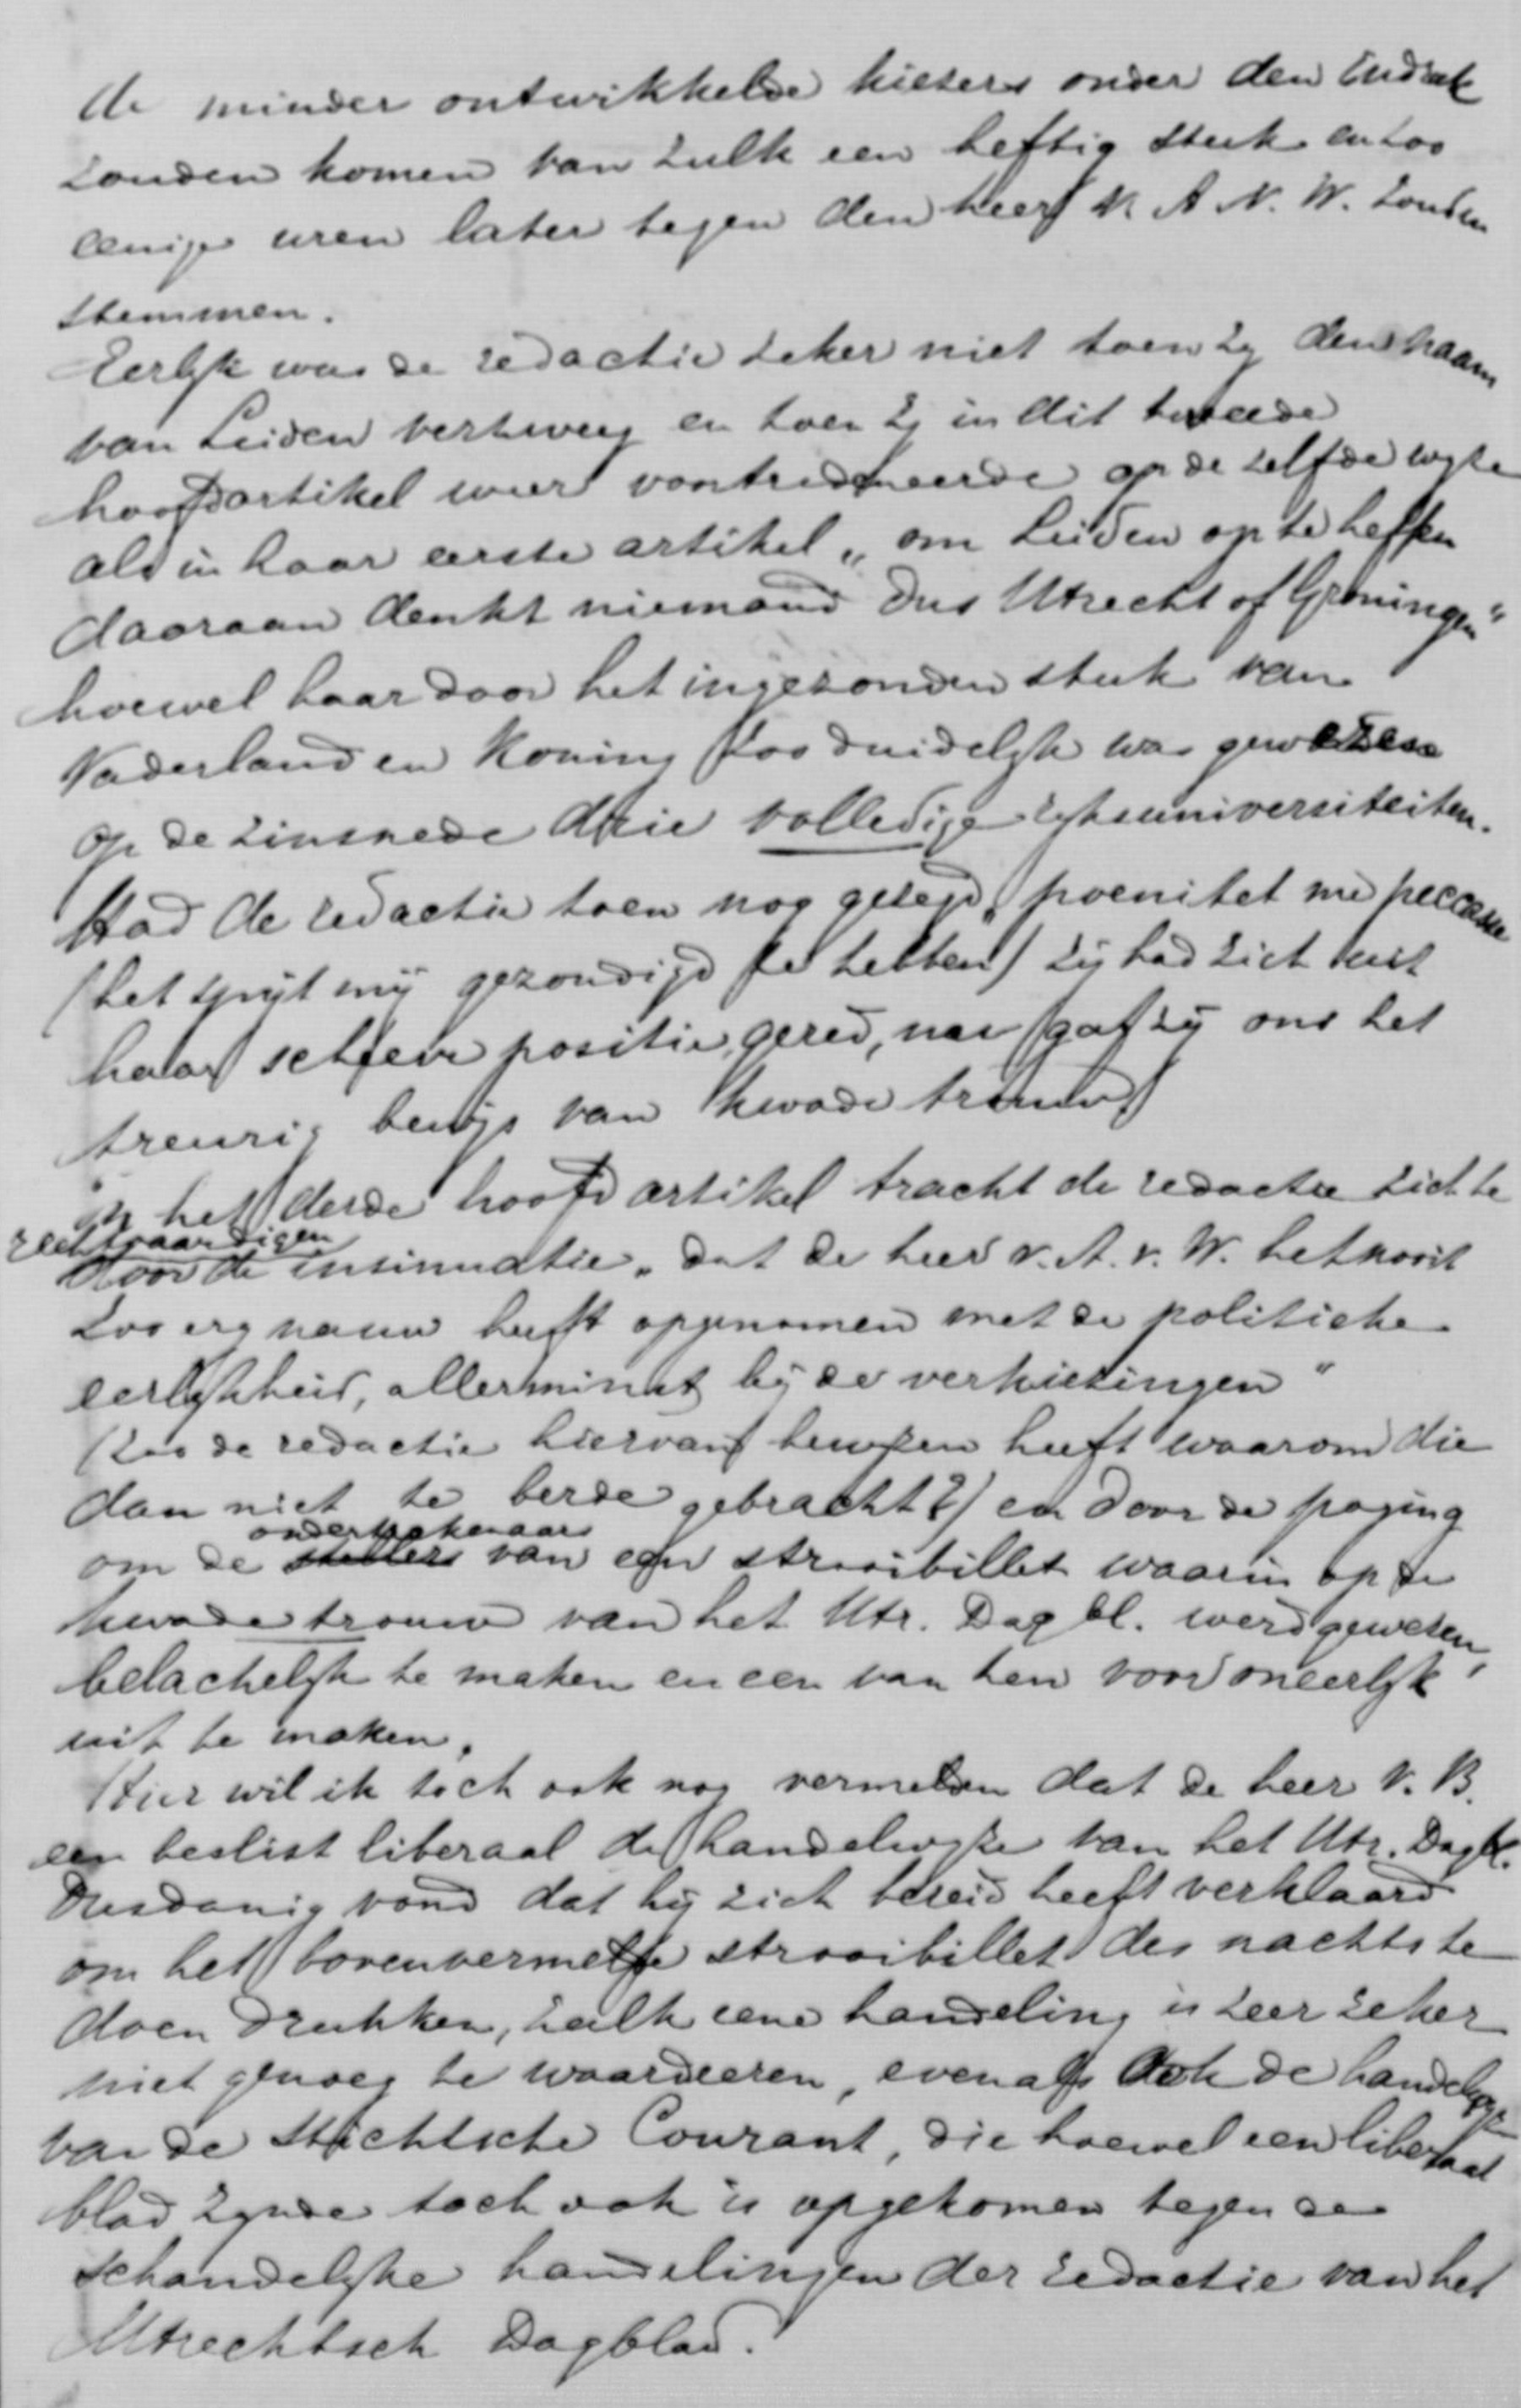 de minder ontwikkelde kiezers onder den indruk
zouden komen van zulk een heftig stuk en zoo
eenige uren later tegen den heer v. A v. W. zouden
stemmen.
Eerlijk was de redactie zeker niet toen zij den naam
van Leiden verzweeg en toen zij in dit tweede
hoofdartikel weer op de zelfde wijze
als in haar eerste artikel „om Leiden op te heffen
daaraan denkt niemand dus Utrecht of Groningen"
hoewel haar door het ingezonden stuk van
Vaderland en Koning zoo duidelijk was gewezen
op de zinsnede drie volledige rijksuniversiteiten.
Had de redactie toen nog gezegd „poenitet me peccasse
(het spijt mij gezondigd te hebben) zij had zich uit
haar scheeve positie gered, nu gaf zij ons het
treurig bewijs van kwade trouw
In het derde hoofdartikel tracht de redactie zich te
rechtvaardigen
door de insinuatie „dat de heer v. A. v. W. het nooit
zoo erg nauw heeft opgenomen met de politieke
eerlijkheid, allerminst bij de verkiezingen"
(Zoo de redactie hiervan bewijzen heeft waarom die
dan niet te berde gebracht?) en door de poging
onderteekenaars
om de stellers van een strooibillet waarin op de
kwade trouw van het Utr. Dagbl. werd gewezen,
belachelijk te maken en een van hen voor oneerlijk
uit te maken.
Hier wil ik toch ook nog vermelden dat de heer v. B.
een beslist liberaal de handelwijze van het Utr. Dagbl.
dusdanig vond dat hij zich bereid heeft verklaard
om het bovenvermelde strooibillet des nachts te
doen drukken, zulk eene handeling is zeer zeker
niet genoeg te waardeeren, evenals ook de handelwijze
van de Stichtsche Courant, die hoewel een liberaal
blad zijnde toch ook is opgekomen tegen de
schandelijke handelingen der redactie van het
Utrechtsch Dagblad.